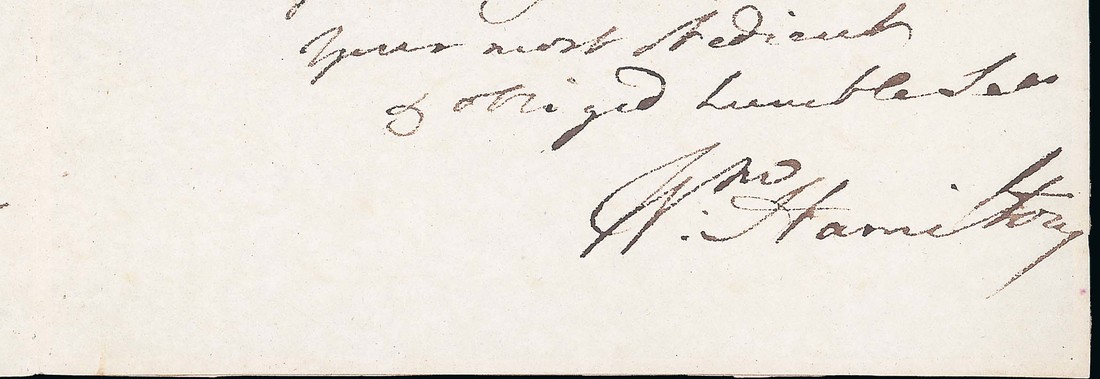 your most Obedient
& obliged humble Ser
Wm. Hamilton